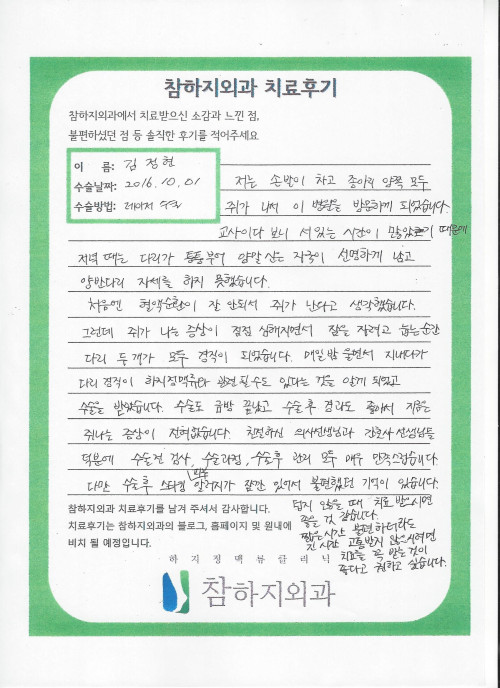 참하지외과 치료후기
참하지외과에서 치료받으신 소감과 느낀 점,
불편하셨던 점 등 솔직한 후기를 적어주세요
이 름: 김정현
수술날짜: 2016.10.01
수술방법: 레이저 수술
저는 손발이 차고 종아리 양쪽 모두
쥐가 나서 이 병원을 방문하게 되었습니다.
교사이다 보니 서있는 시간이 많았기 때문에
저녁 때는 다리가 퉁퉁부어 양말 신는 자국이 선명하게 남고
양반다리 자세를 하지 못했습니다.
처음엔 혈액순환이 잘 안되서 쥐가 난다고 생각했습니다.
그런데 쥐가 나는 증상이 점점 심해지면서 잠을 자려고 눕는순간
다리 두개가 모두 경직이 되었습니다. 매일밤 울면서 지내다가
다리 경직이 하지정맥류와 관련될수도 있다는 것을 알게 되었고
수술을 받았습니다. 수술도 금방 끝났고 수술후 경과도 좋아서 지금은
쥐나는 증상이 전혀없습니다. 친절하신 의사선생님과 간호사선생님들
덕분에 수술전 검사, 수술과정, 수술후 관리 모두 매우 만족스럽습니다.
다만 수술후 스타킹 알러지가 잠깐 있어서 불편했던 기억이 있습니다.
덥지 않을 때 치료받으시면
좋을 것 같습니다.
짧은시간 불편하더라도
긴 시간 고통받지 않으시려면
치료를 꼭 받는것이
좋다고 권하고 싶습니다.
참하지외과 치료후기를 남겨 주셔서 감사합니다.
치료후기는 참하지외과의 블로그, 홈페이지 및 원내에
비치 될 예정입니다.
하지정맥류클리닉
참하지외과